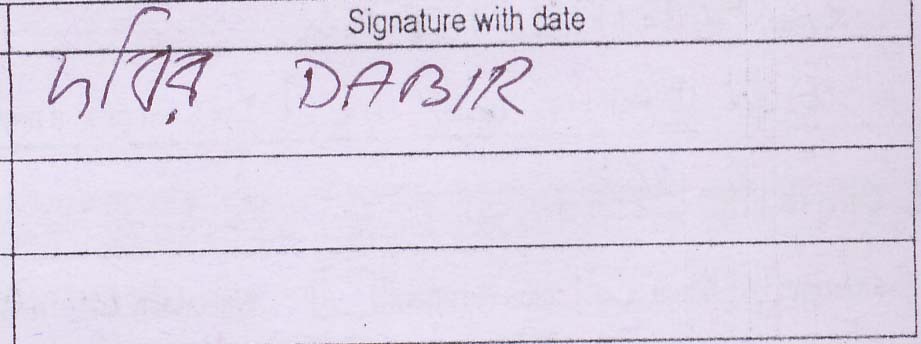 Signature with date
দবির DABIR